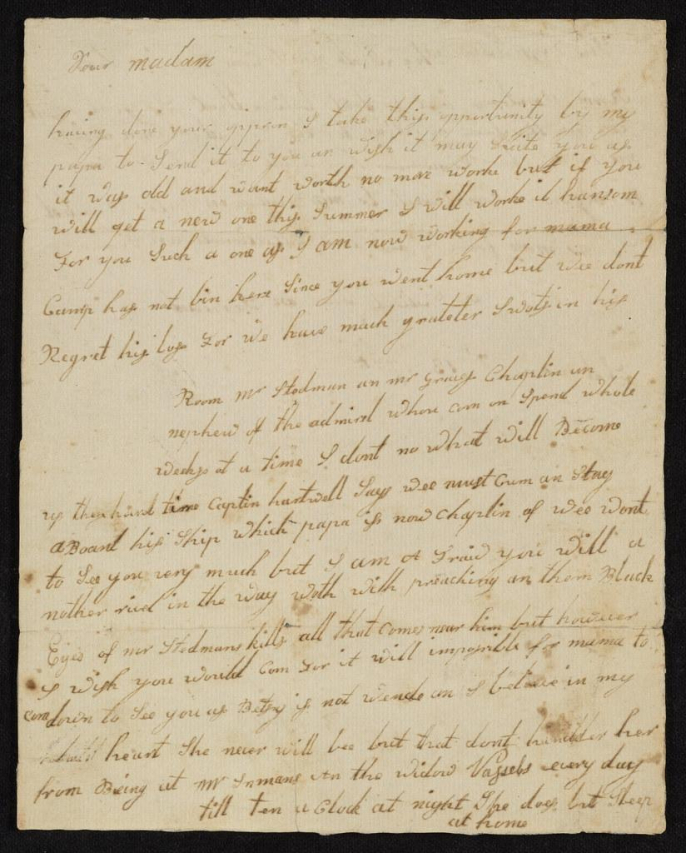 Dear madam
having done your appron I take this opportunity by my
papa to Send it to you an wish it may Suite you as
it was old and want worth no more worke but if you
will get a new one this Summer I will worke it hansom
For you Such a one as I am now working for mama
Camp has not bin here Since you went home but wee dont
Regret his los For we have much grateter Swots in his
Room Mr Stedman an mr Graves Chaplin an
nephew of the admiral whore com an Spend whole
weeks at a time I dont no what will Become
us this hard time Captin hartwell Says wee must Cum an Stay
aBoard his Ship which papa is now Chaplin of wee wont
to See you very much but I am a Fraid you will a
nother rival in the way with with preaching an them Black
Eyes of mr Stedmans kills all that Comes near him but however
I wish you would Com For it will impossible for mama to
Come down to See you as Betsy is not wende an I beleave in my
heart She never will bee but that dont hindder her
from Being at Mr Inmans An the widow Vassels every day
till ten a Clock at night She does but Sleep
at home